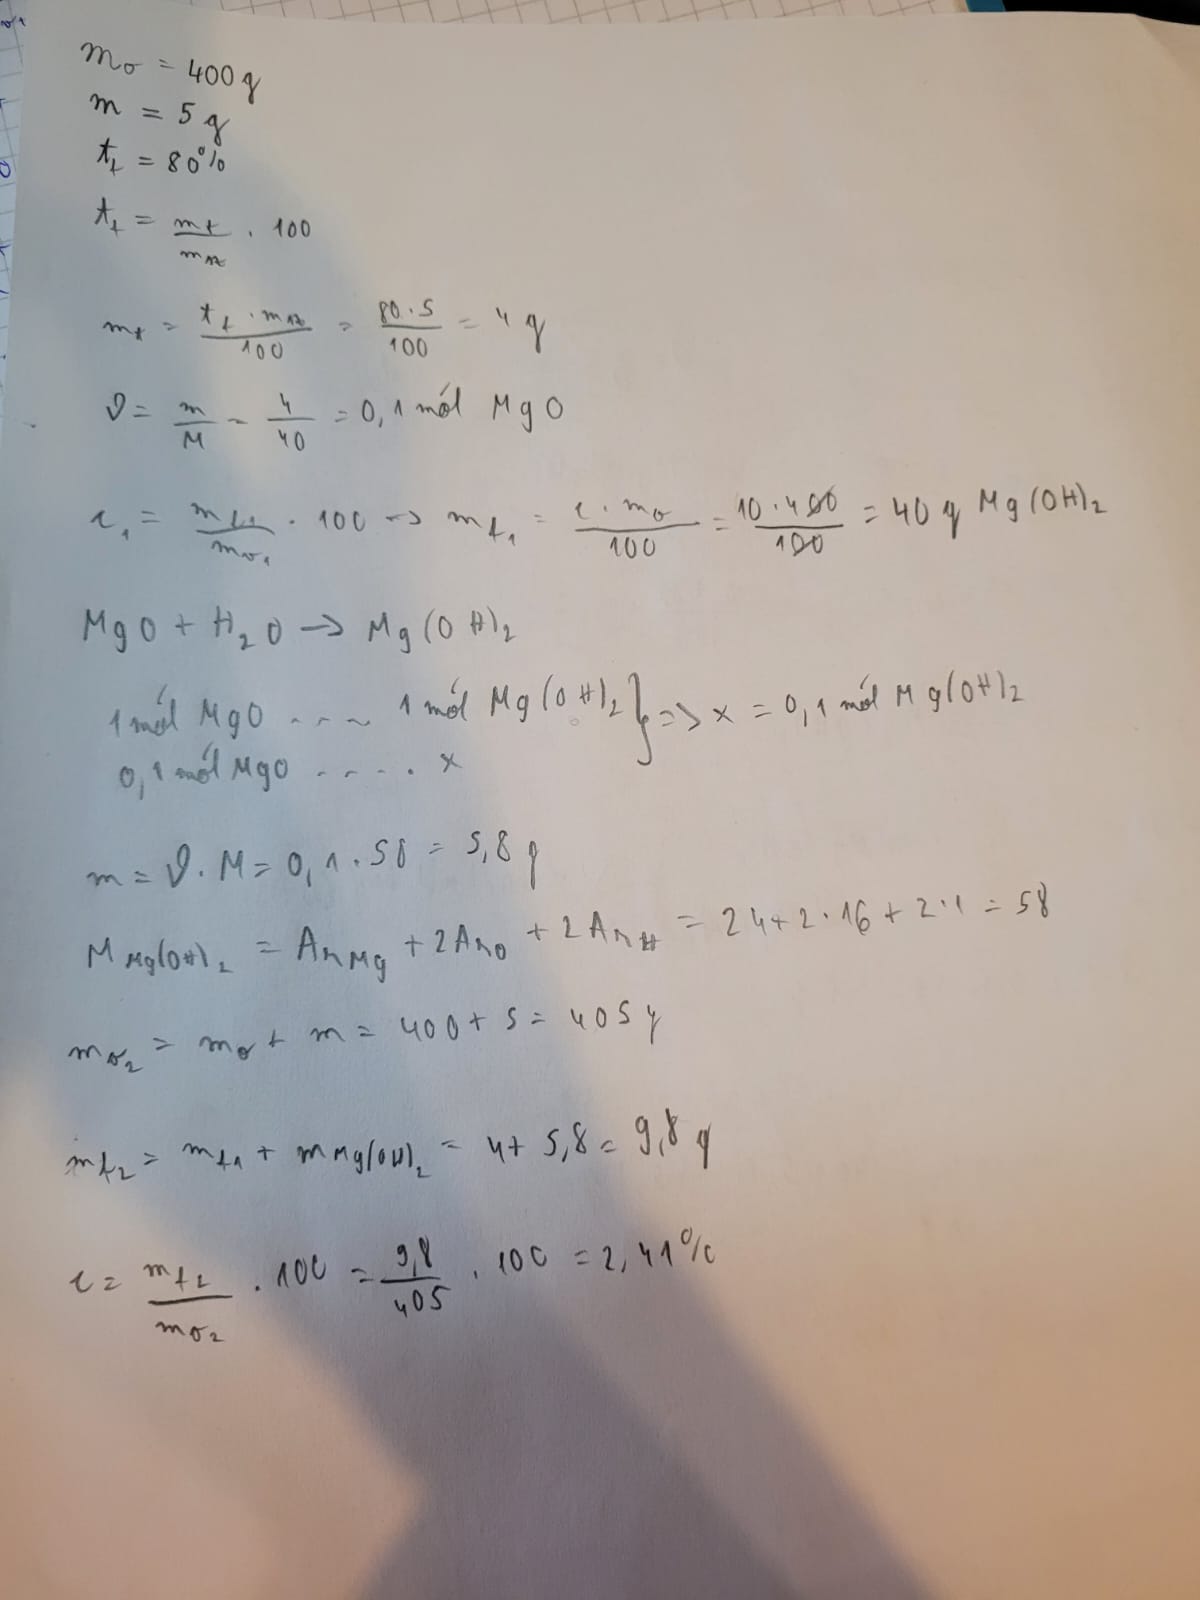 mσ = 400 g
m = 5 g
t_t = 80%
t_t = mt/m · 100
m_t = 80·5/100 = 4 g
ϑ = m/M = 4/40 = 0,1 mól MgO
c₁ = m_t₁/mσ₁ · 100 → m_t₁ = c·mσ/100 = 10·400/100 = 40 g Mg(OH)₂
MgO + H₂O → Mg(OH)₂
1 mól MgO .... 1 mól Mg(OH)₂ } => x = 0,1 mól Mg(OH)₂
0,1 mól MgO ..... x
m = ϑ · M = 0,1 · 58 = 5,8 g
M Mg(OH)₂ = Ar Mg + 2 Ar O + 2 Ar H = 24 + 2·16 + 2·1 = 58
mσ₂ = mσ + m = 400 + 5 = 405 g
m_t₂ = m_t₁ + m Mg(OH)₂ = 4 + 5,8 = 9,8 g
c = m_t₂/mσ₂ · 100 = 9,8/405 · 100 = 2,41%